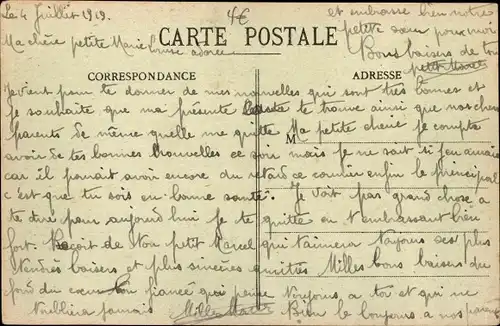 Le 4 Juillet 1919.
4€
et embrasse bien notres
petite sœur pour moi
Ma chère petite Marie Louise adorée
Bons baisers de ton
petit
CARTE POSTALE
CORRESPONDANCE
ADRESSE
Je vient pour te donner de mes nouvelles qui sont très bonnes et
je souhaite que ma présente te trouve ainsi que nos chers
parents de même quelle me quitte Ma petite cherie Je compte
M
avoir de tes bonnes Nouvelles ce soir mais Je ne sait si J'en aurai
car il pourait avoir encore du retard ce courrier enfin le principal
c'est que tu sois en bonne santé. Je voit pas grand chose à
te dire pour aujourd hui Je te quitte en t'embrassant bien
fort. Reçoit de ton petit Marcel qui t'aimera toujours ses plus
tendres baisers et plus sincères amitiés Milles bons baisers du
fond du cœur ton fiancé qui pense toujours à toi et qui ne
t'oubliera jamais
Bien le bonjours a nos parents